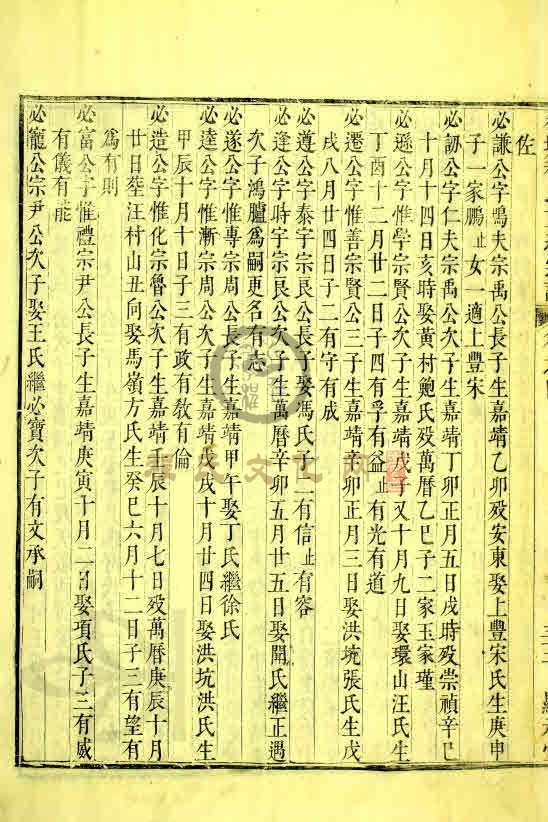 佐
必謙公字鳴夫宗禹公長子生嘉靖乙卯歿安東娶上豐宋氏生庚申
子一家鵬止女一適上豐宋
必訒公字仁夫宗禹公次子生嘉靖丁卯正月五日戌時歿崇禎辛巳
十月十四日亥時娶黃村鮑氏歿萬曆乙巳子二家玉家瑾
必遜公字惟學宗賢公次子生嘉靖戊子又十月九日娶環山汪氏生
丁酉十二月廿二日子四有孚有益止有光有道
必遷公字惟善宗賢公三子生嘉靖辛卯正月三日娶洪坑張氏生戊
戌八月廿四日子二有守有成
必遵公字泰宇宗艮公長子娶馮氏子二有信止有容
必逢公字時宇宗艮公次子生萬曆辛卯五月廿五日娶開氏繼正遇
次子鴻臚為嗣更名有志
必遂公字惟專宗周公長子生嘉靖甲午娶丁氏繼徐氏
必達公字惟漸宗周公次子生嘉靖戊戌十月廿四日娶洪坑洪氏生
甲辰十月十日子三有政有教有倫
必造公字惟化宗魯公次子生嘉靖壬辰十月七日歿萬曆庚辰十月
廿日塟汪村山丑向娶馬嶺方氏生癸巳六月十二日子三有望有
為有則
必富公字惟禮宗尹公長子生嘉靖庚寅十月二日娶項氏子三有威
有儀有能
必寵公宗尹公次子娶王氏繼必寶次子有文承嗣